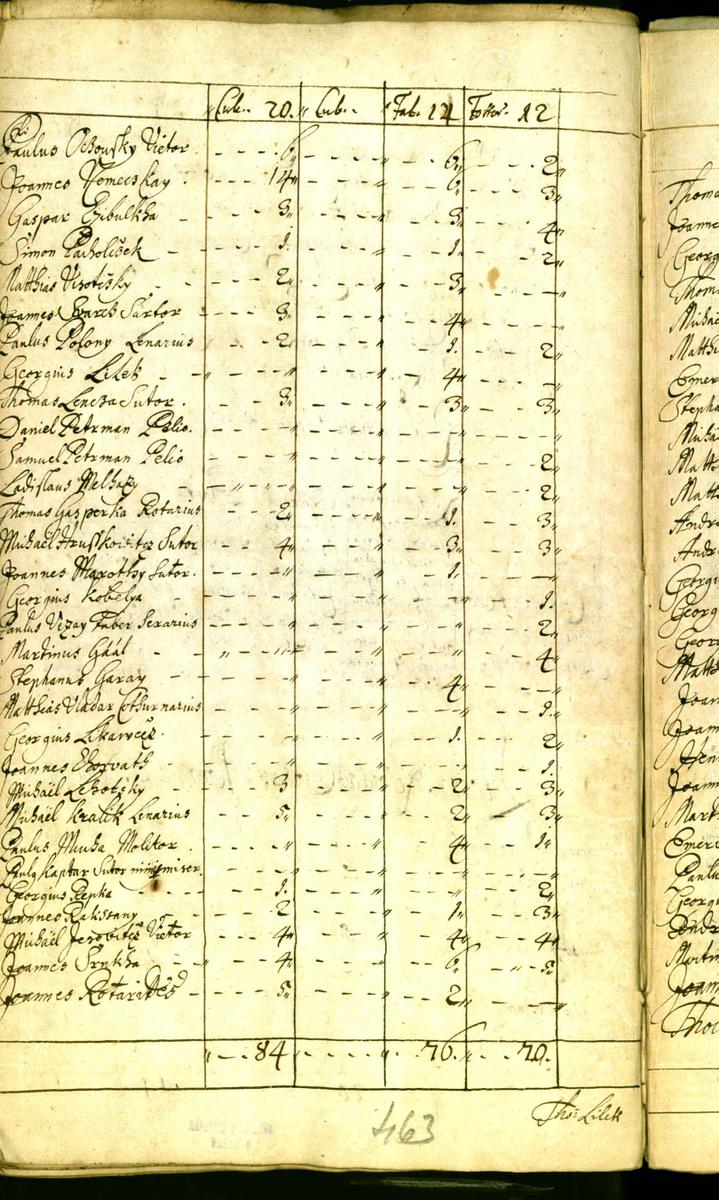 Cub. 20. Cub. Fab. 14 12
Paulus Victor 6 6 2
Joannes Nemecskay 14 6 3
Gaspar Czibulkha 3 3 4
Simon Pacholicsek 1 1 2
Matthias 2 3 —
Joannes Svarcz Sartor 3 4 —
Paulus Polony Lenarius 2 1 2
Georgius Lilek 4 —
Thomas Lencza Sutor 3 3 3
Daniel Petrman Pelio
Samuel Petrman Pelio 2
Ladislaus 2
Thomas Gasperka Rotarius 2 1 3
Michael Hruskovitz Sutor 4 3 3
Joannes Marothy Sutor 1 —
Georgius Kobelya 1
Paulus Vizay Faber Serarius 2
Martinus Gaál 4
Stephanus Garay 4 —
Matthias Vladar Cothurnarius 1
Georgius Likavecz 1 2
Joannes Horvath 1
Michaël Lehotsky 3 2 3
Michaël Kralik Lenarius 5 2 3
Paulus Mucha Molitor 4 1
Kaptar Sutor miser
Georgius Repka 1 2
Joannes Rakssany 2 1 3
Michaël Victor 4 4 4
Joannes Srnkha 4 6 5
Joannes Rotarides 5 2 —
84 76 70
Tho: Lilek
463
Thoma
Joanne
Georgi
Thoma
Michae
Matthi
Emer
Stepha
Micha
Matt
Matt
Andr
Andr
Georgi
Georg
Geor
Matth
Joan
Joan
Joann
Mart
Emer
Paulu
Georgi
Andr
Martin
Joann
Thom